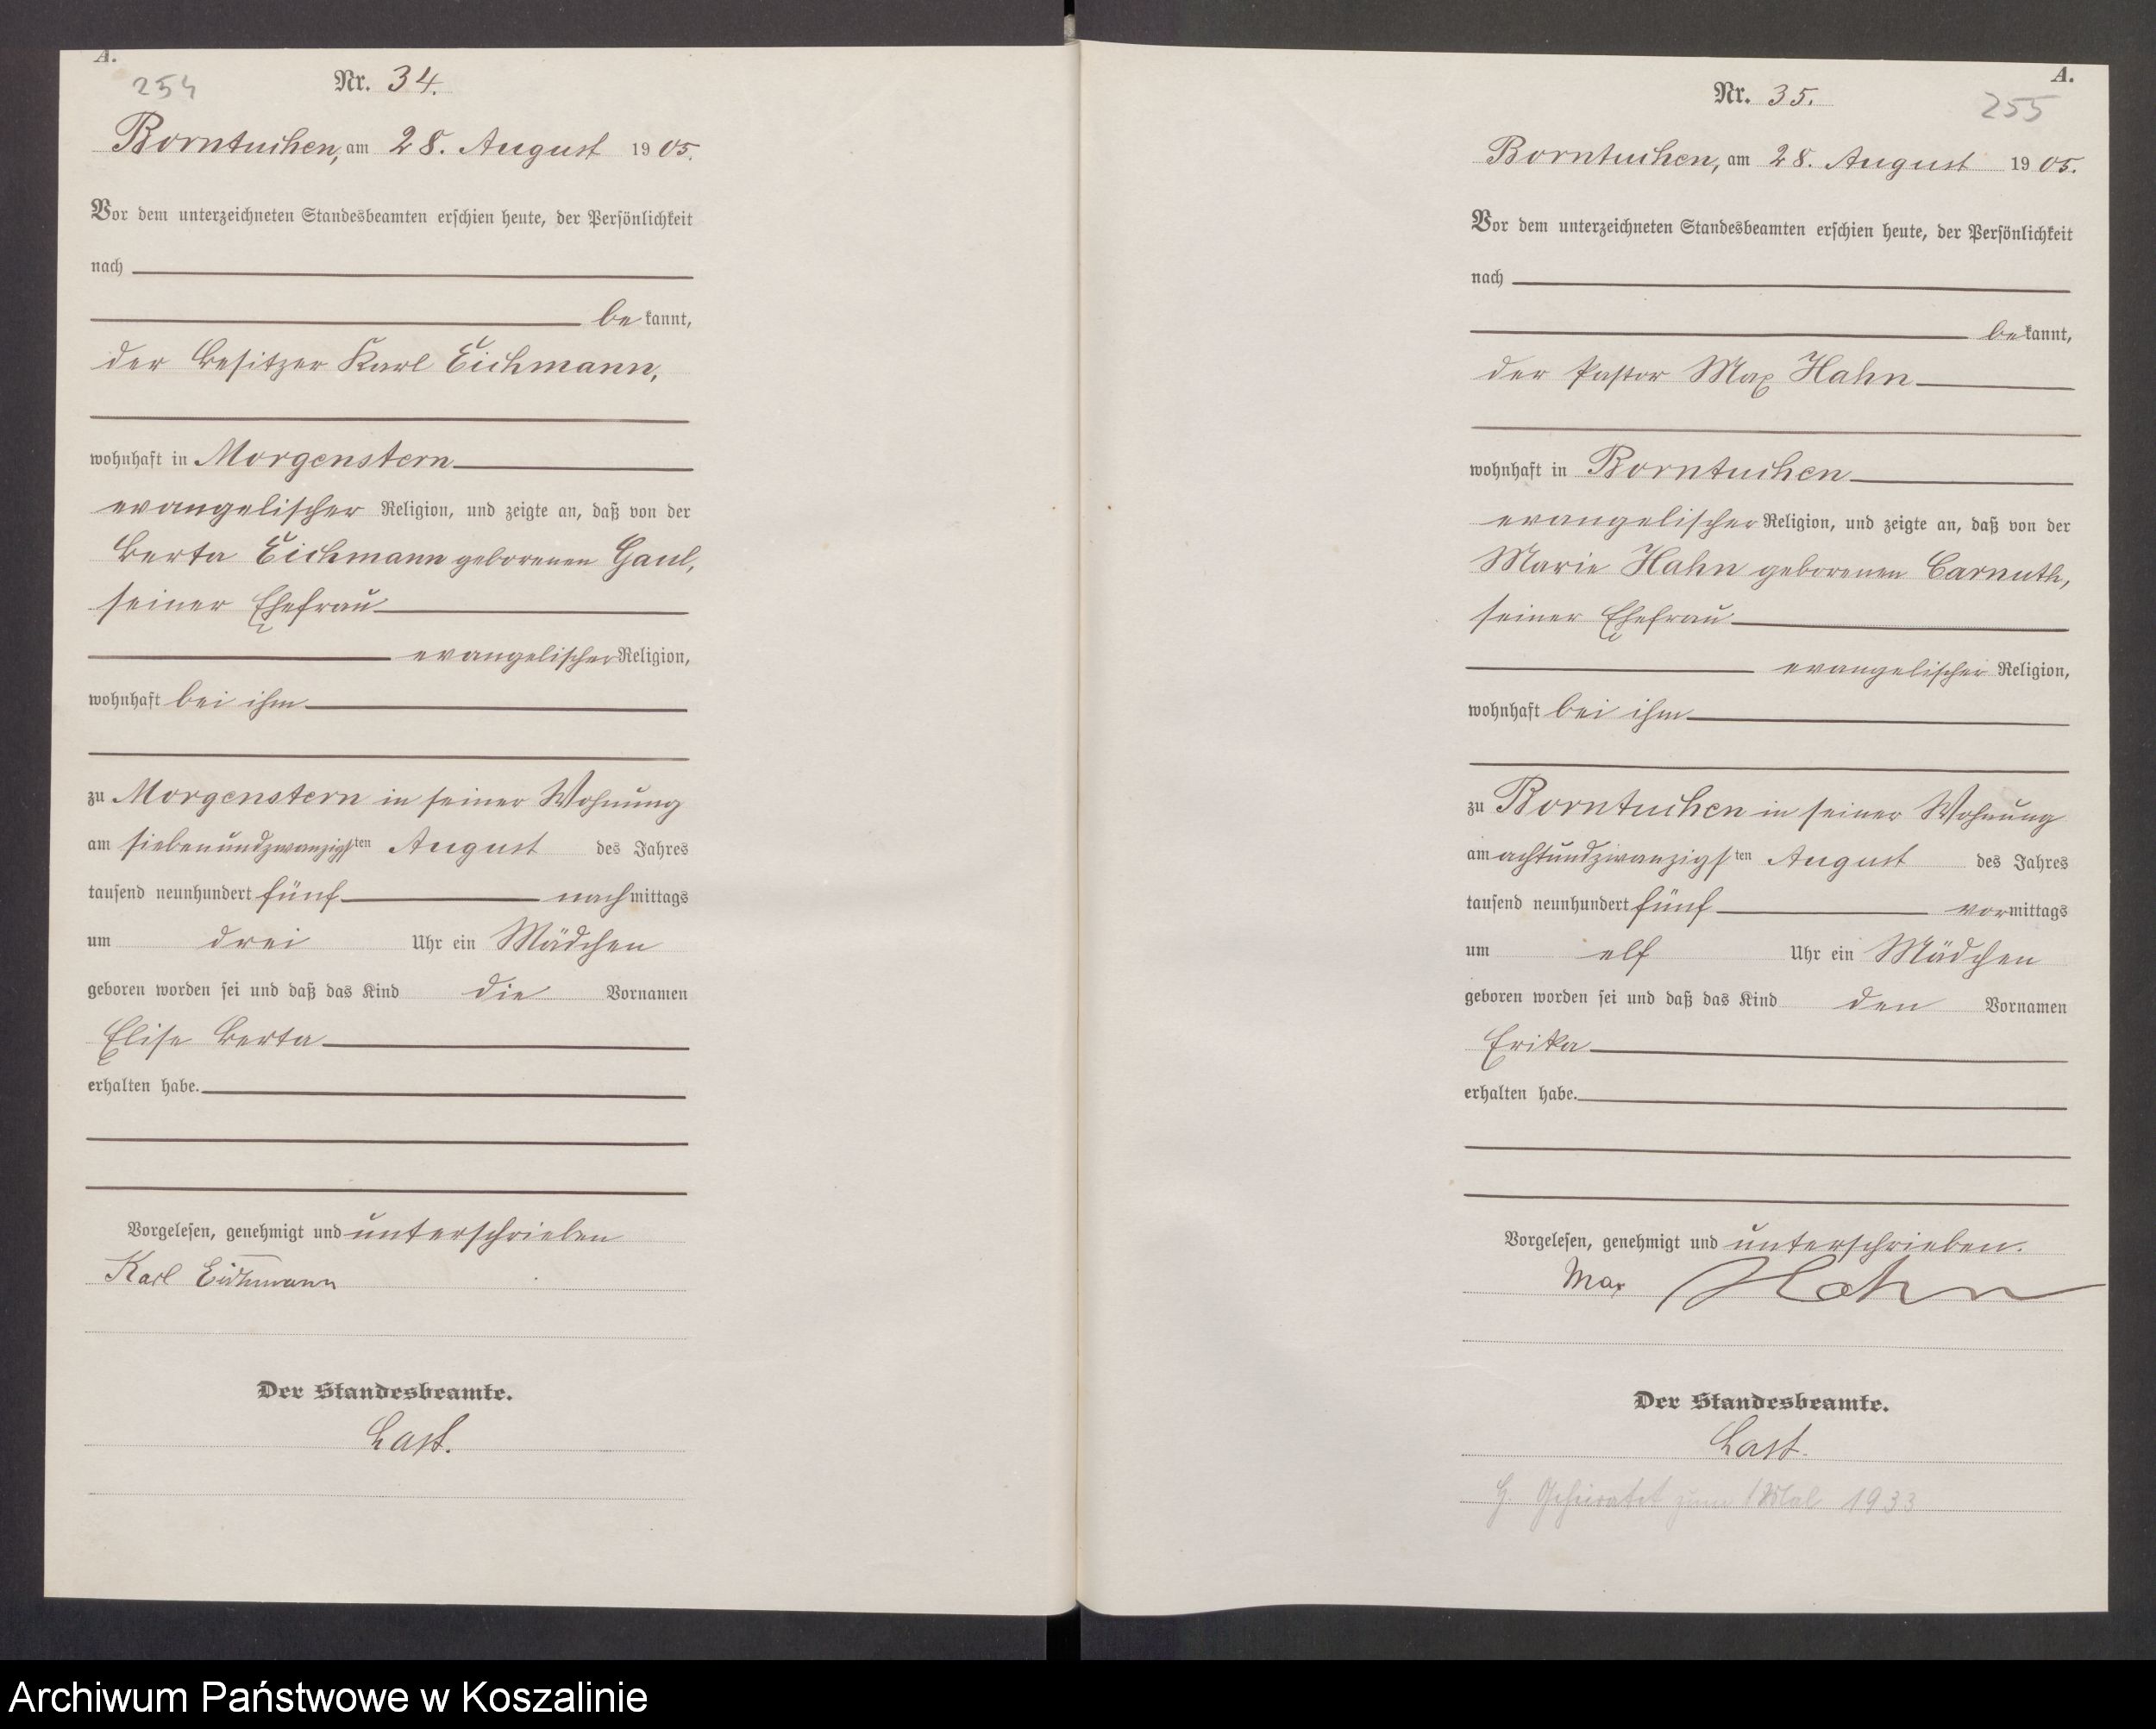 A.
254
Nr. 34.
Borntuchen, am 28. August 1905.
Vor dem unterzeichneten Standesbeamten erschien heute, der Persönlichkeit
nach
be kannt,
der Besitzer Karl Eichmann,
wohnhaft in Morgenstern
evangelischer Religion, und zeigte an, daß von der
Berta Eichmann geborenen Gaul,
seiner Ehefrau
evangelischer Religion,
wohnhaft bei ihm
zu Morgenstern in seiner Wohnung
am siebenundzwanzigsten August des Jahres
tausend neunhundert fünf nachmittags
um drei Uhr ein Mädchen
geboren worden sei und daß das Kind die Vornamen
Elise Berta
erhalten habe.
Vorgelesen, genehmigt und unterschrieben
Karl Eichmann
Der Standesbeamte.
Last.
A.
255
Nr. 35.
Borntuchen, am 28. August 1905.
Vor dem unterzeichneten Standesbeamten erschien heute, der Persönlichkeit
nach
bekannt,
der Pastor Max Hahn
wohnhaft in Borntuchen
evangelischer Religion, und zeigte an, daß von der
Marie Hahn geborenen Carnuth,
seiner Ehefrau
evangelischer Religion,
wohnhaft bei ihm
zu Borntuchen in seiner Wohnung
am achtundzwanzigsten August des Jahres
tausend neunhundert fünf vormittags
um elf Uhr ein Mädchen
geboren worden sei und daß das Kind den Vornamen
Erika
erhalten habe.
Vorgelesen, genehmigt und unterschrieben.
Max Hahn
Der Standesbeamte.
Last.
Geheiratet zum 1 Mal 1933
Archiwum Państwowe w Koszalinie